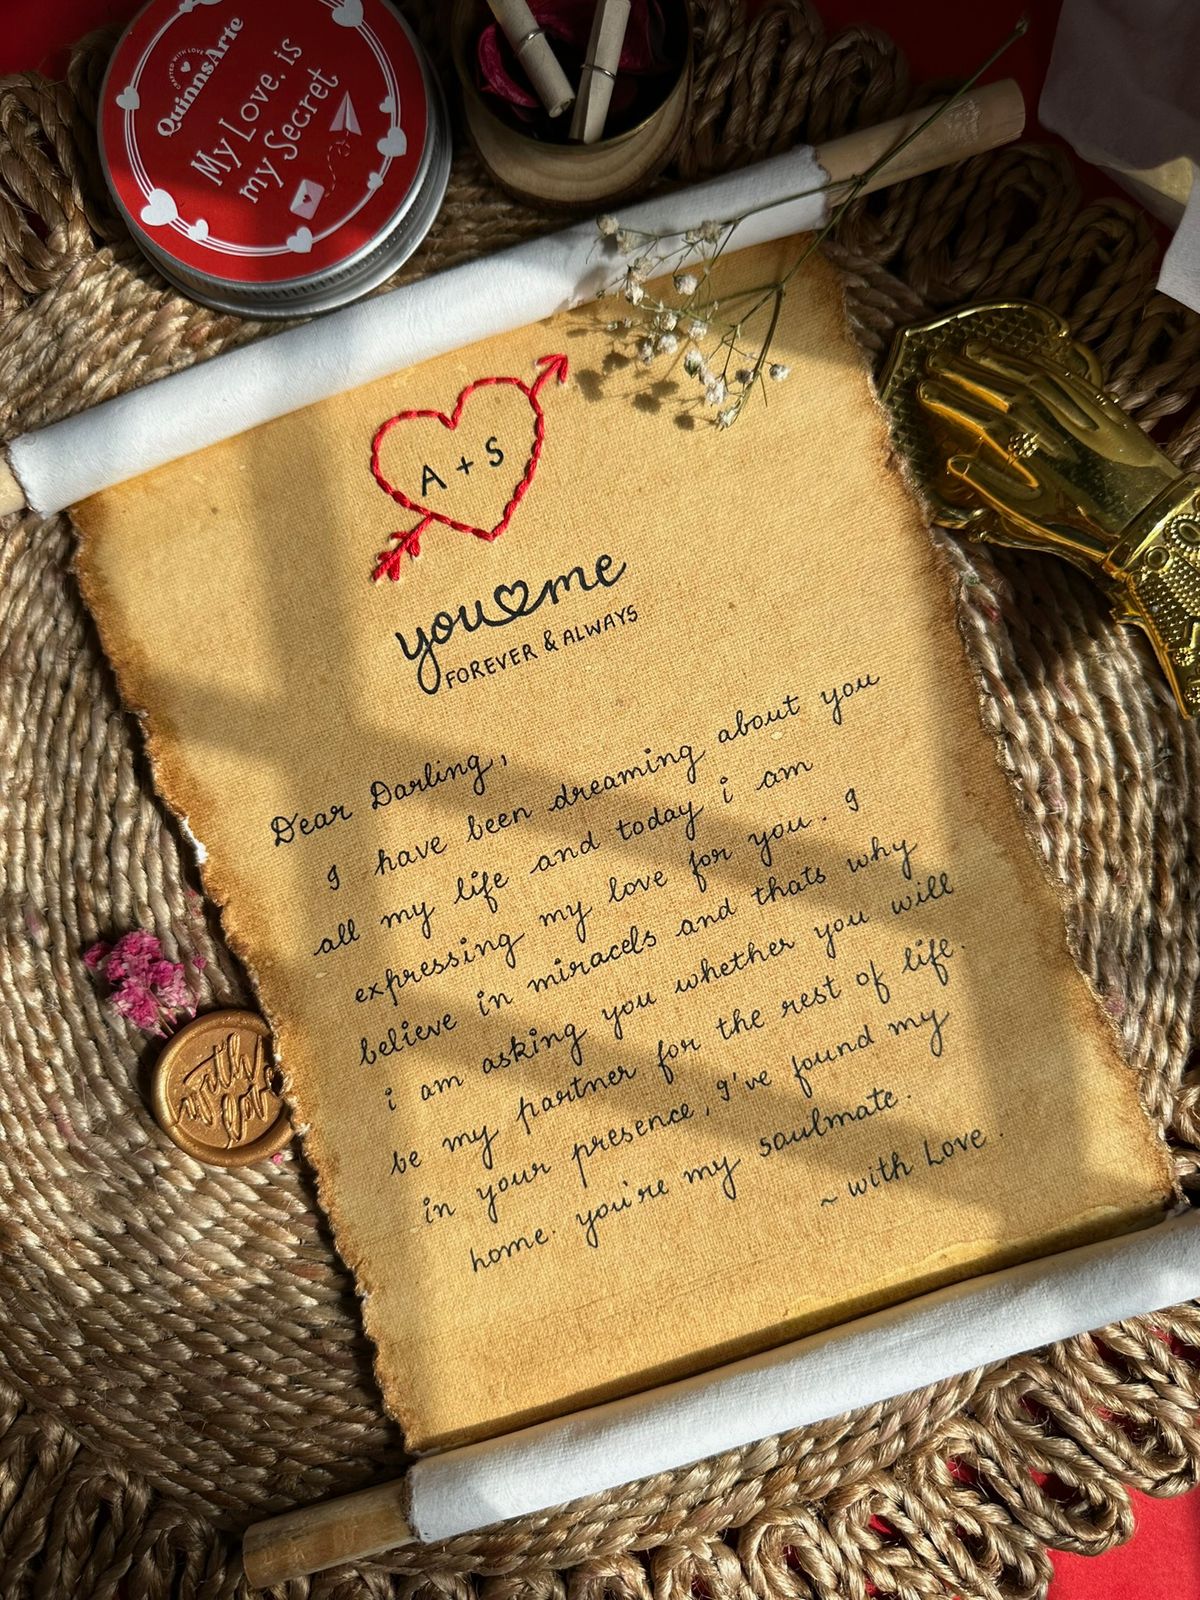 CRAFTED WITH LOVE
QuinnsArte
My Love, is
my Secret
A + S
you me
FOREVER & ALWAYS
Dear Darling,
I have been dreaming about you
all my life and today i am
expressing my love for you. I
believe in miracels and thats why
i am asking you whether you will
be my partner for the rest of life.
in your presence, I've found my
home. you're my soulmate.
~ with Love.
with
love